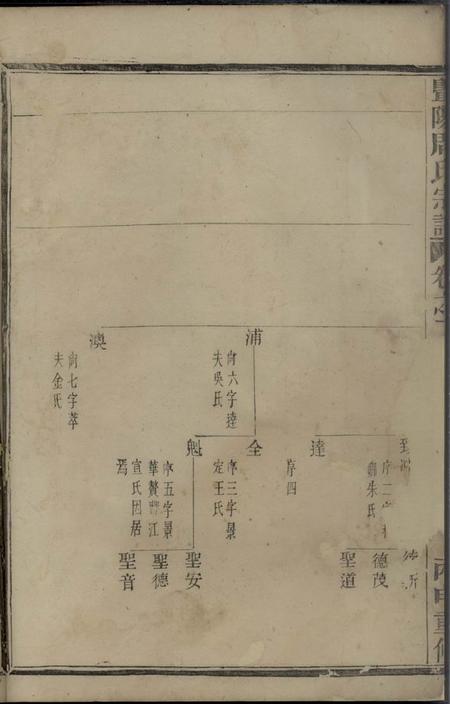 暨陽周氏宗譜
卷之
丙申重修
浦
向六字達
夫吳氏
澳
向七字萃
夫金氏
達
序四
全
序三字景
定王氏
魁
序五字景
華贅江
宣氏因居
焉
序二
朱氏
德茂
聖道
聖安
聖德
聖音